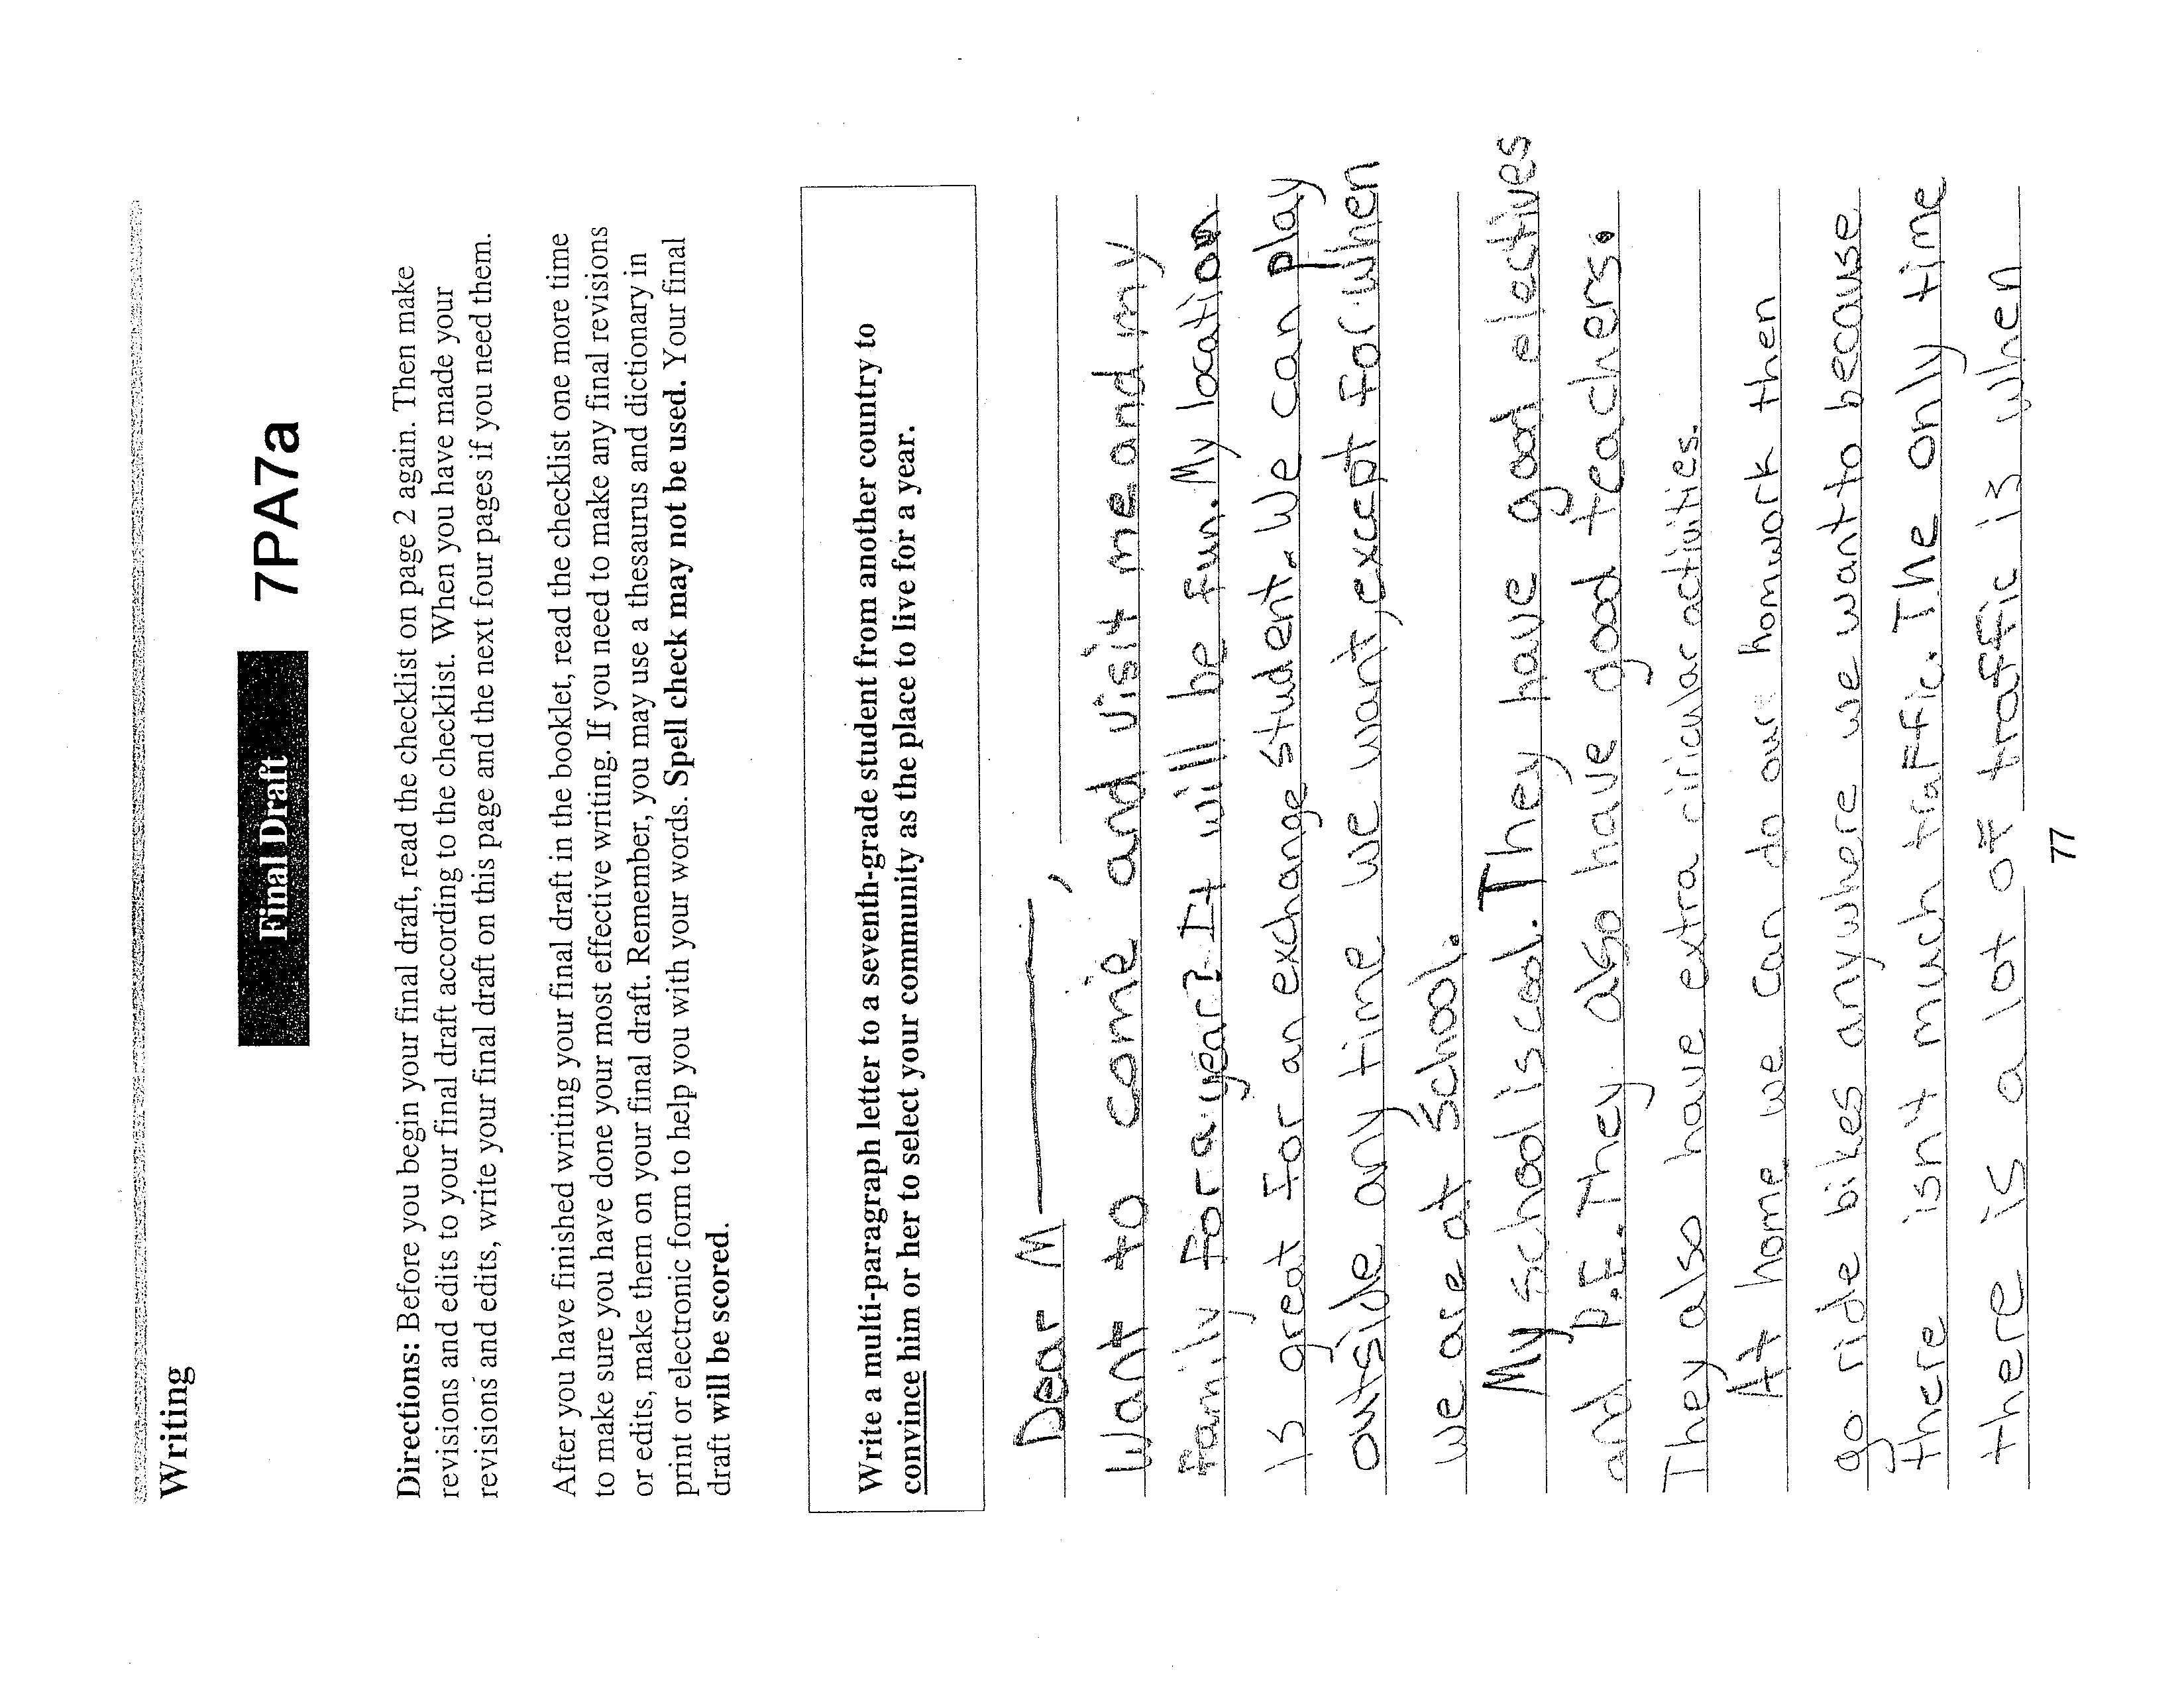 Writing
Final Draft 7PA7a
Directions: Before you begin your final draft, read the checklist on page 2 again. Then make
revisions and edits to your final draft according to the checklist. When you have made your
revisions and edits, write your final draft on this page and the next four pages if you need them.
After you have finished writing your final draft in the booklet, read the checklist one more time
to make sure you have done your most effective writing. If you need to make any final revisions
or edits, make them on your final draft. Remember, you may use a thesaurus and dictionary in
print or electronic form to help you with your words. Spell check may not be used. Your final
draft will be scored.
Write a multi-paragraph letter to a seventh-grade student from another country to
convince him or her to select your community as the place to live for a year.
Dear M,
Want to come and visit me and my
family for a year? It will be fun. My location
is great for an exchange student. We can play
outside any time we want, except for when
we are at school.
My school is cool. They have good electives
and P.E. They also have good teachers.
They also have extra ciricular activities.
At home we can do our homwork then
go ride bikes anywhere we want to because
there isn't much traffic. The only time
there is a lot of traffic is when
77